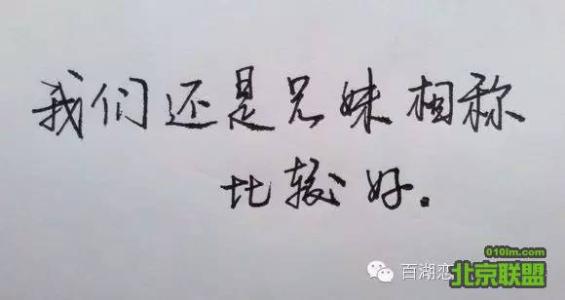 我们还是兄妹相称
比较好.
百湖恋
010lm.com
北京联盟